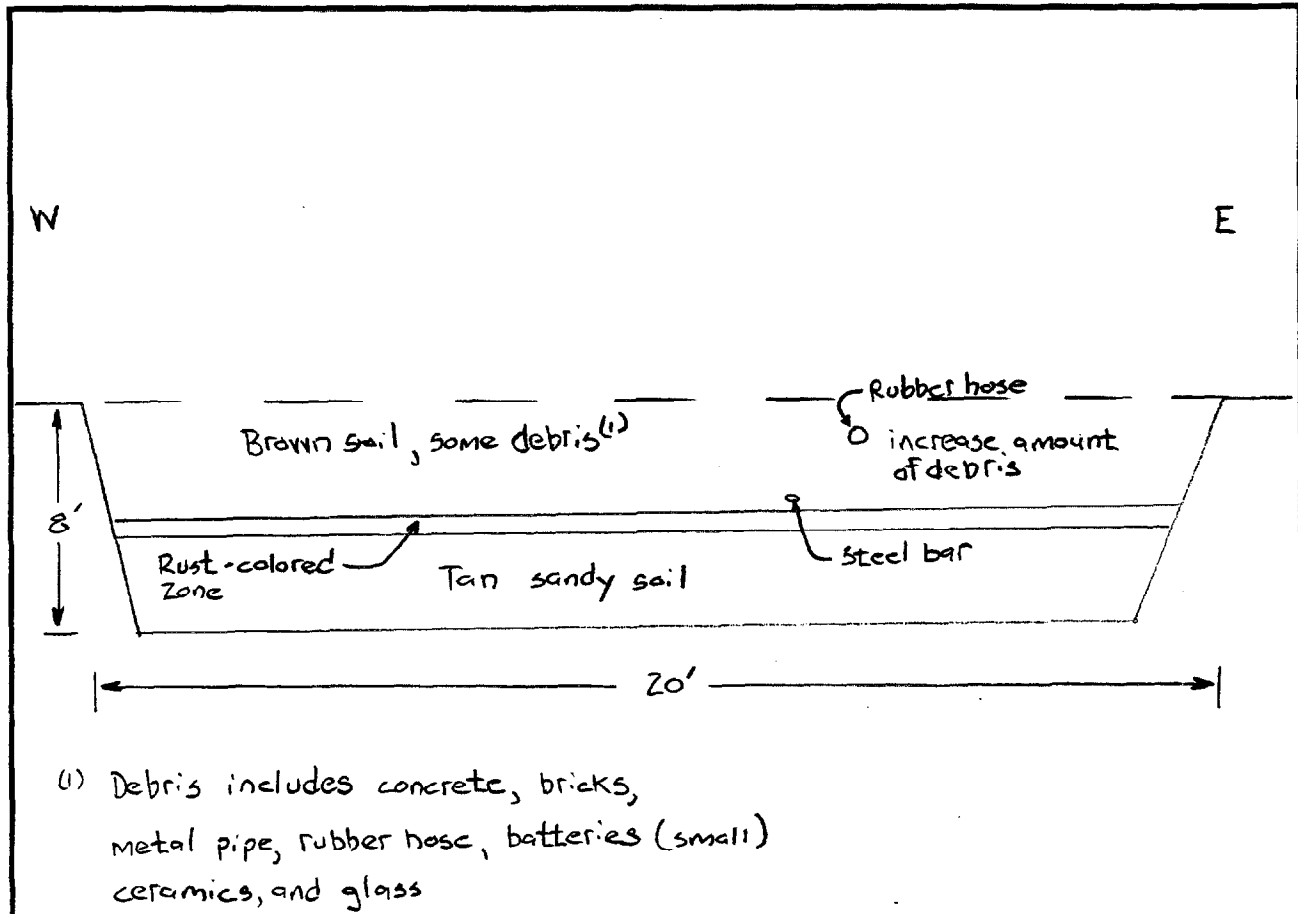 W
E
Rubber hose
Brown soil, some debris(1)
increase amount
of debris
8'
Rust-colored
Zone
Steel bar
Tan sandy soil
20'
(1) Debris includes concrete, bricks,
metal pipe, rubber hose, batteries (small)
ceramics, and glass